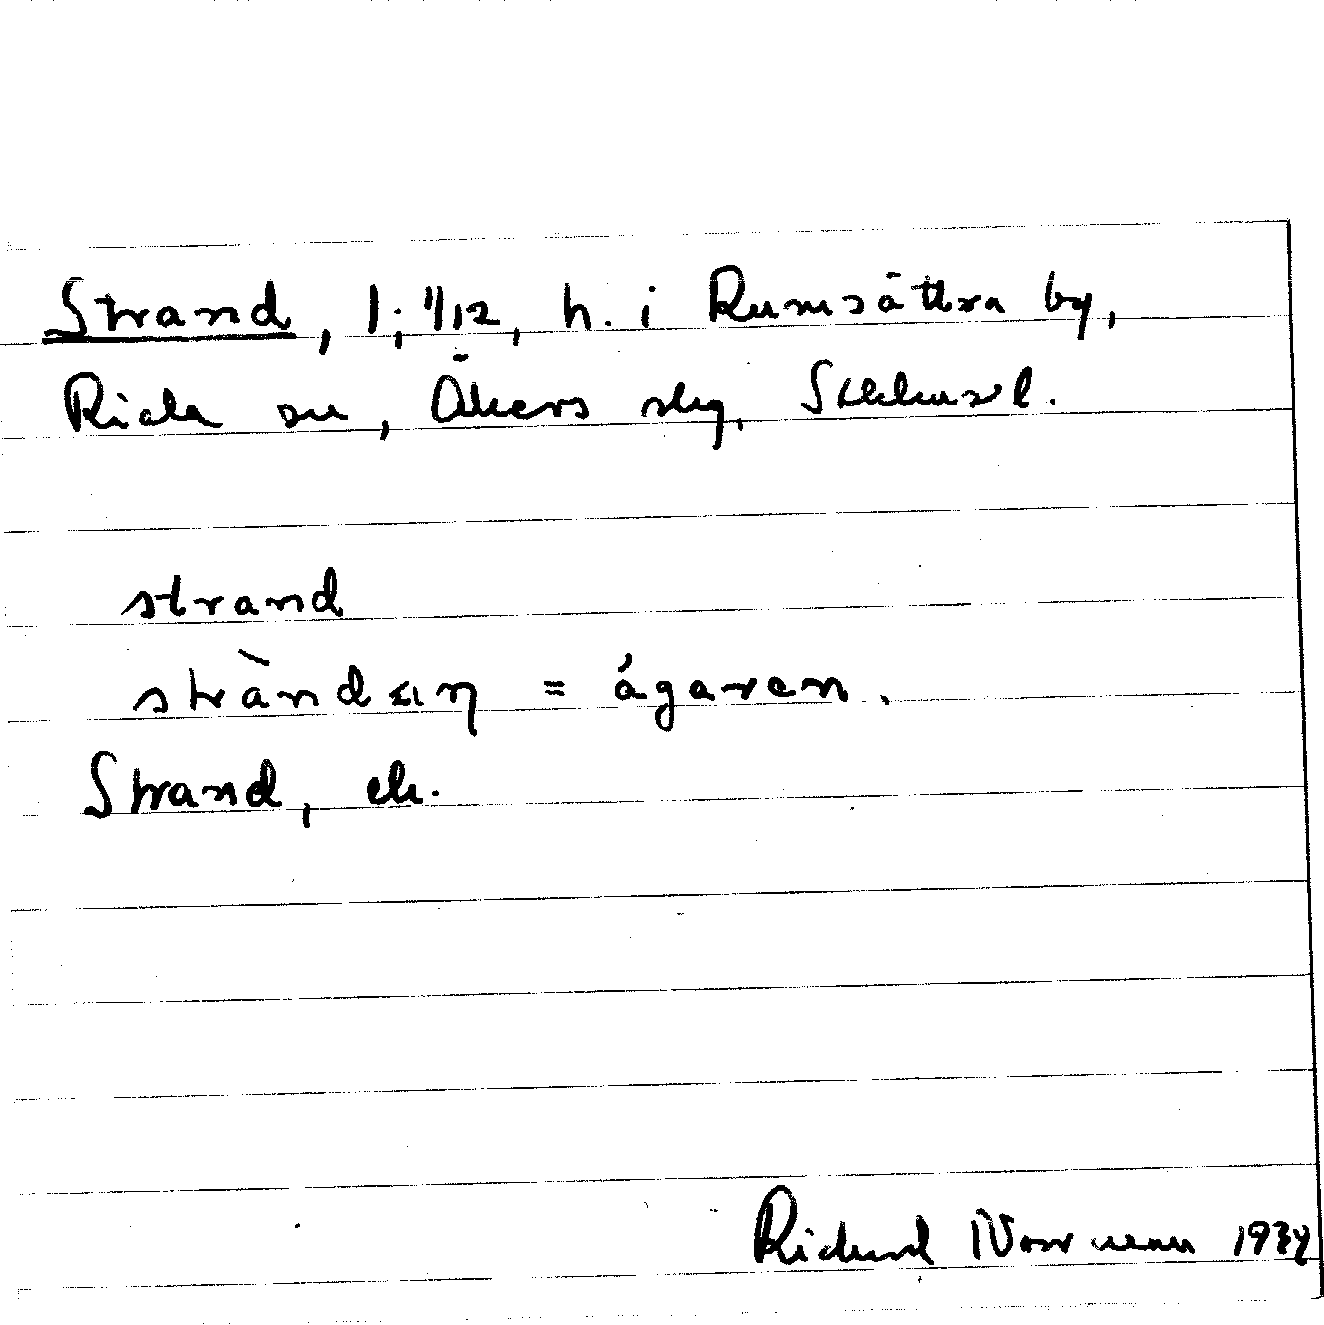 Strand, 1; 1/12, h. i Rumsättra by,
Riala sn, Åkers skg, Stockhusl.
strand
stràndan = ägaren.
Strand, ek.
Richard Norrman 1934